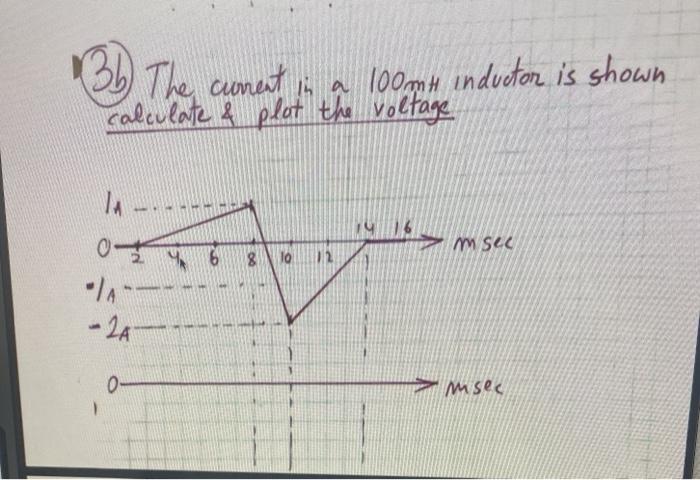 3b) The current in a 100mH inductor is shown
calculate & plot the voltage
1A
0
2 4 6 8 10 12 14 16 msec
-1A
-2A
0 msec